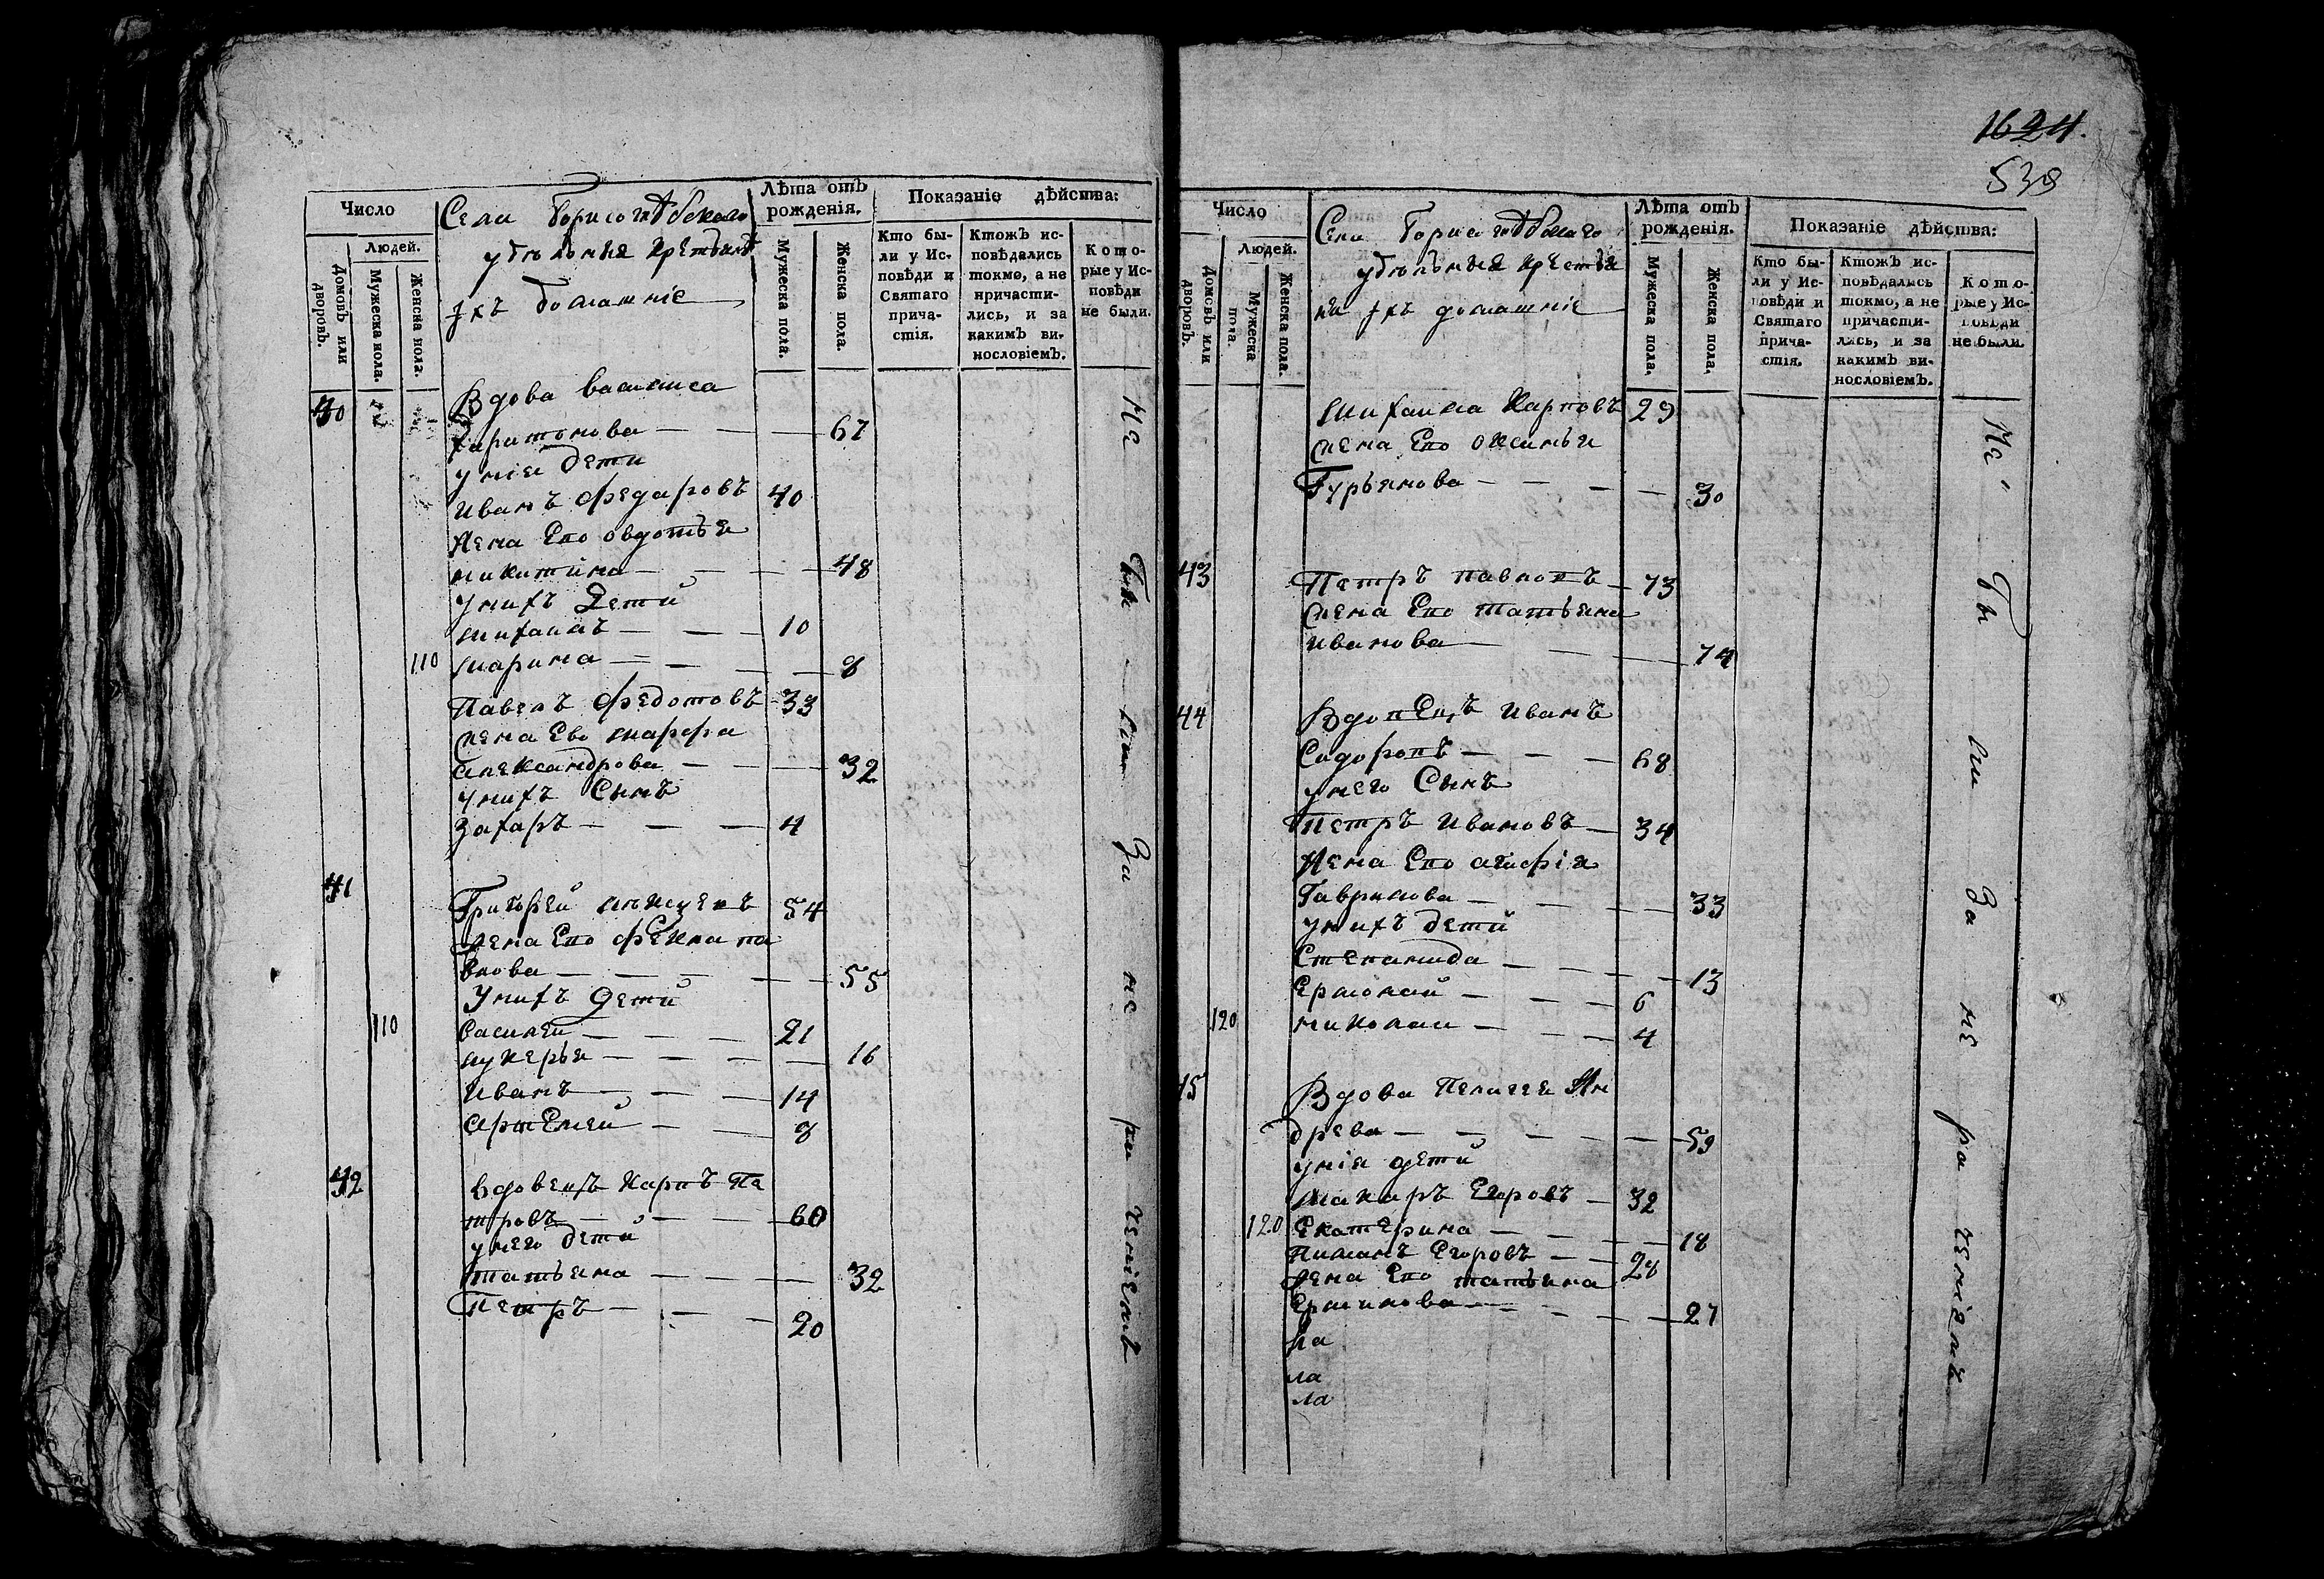 Число
Людей.
Домовъ или дворовъ.
Мужеска пола.
Женска пола.
Села Борисоглѣбскаго
удѣльныя крестьянѣ
ихъ домашніе
Лѣта отъ рожденія.
Мужеска пола.
Женска пола.
Показаніе дѣйства:
Кто были у Исповѣди и Святаго причастія.
Ктожъ исповѣдались токмо, а не причастились, и за какимъ винословіемъ.
Которые у Исповѣди не были.
40 Вдова василиса
харитонова 67
у нıея дети
Иванъ Федаровъ 40
жена Ево овдотья
никитина 48
у нихъ Дети
михаилъ 10
110 марина 8
Павелъ Федотовъ 33
жена Ево марфа
александрова 32
у нихъ Сынъ
Захаръ 4
41
Григорей 54
жена Ево Фекла па
влова 55
У нихъ Дети
110 василей 21
лукерья 16
Иванъ 14
артемей 8
42 вдовецъ карпъ Пе
тровъ 60
у него дети
татьяна 32
Петръ 20
Не были за не рачениемъ
1624.
538
Число
Людей.
Домовъ или дворовъ.
Мужеска пола.
Женска пола.
Села Борисоглѣбскаго
удѣльныя крестья
не ихъ домашніе
Лѣта отъ рожденія.
Мужеска пола.
Женска пола.
Показаніе дѣйства:
Кто были у Исповѣди и Святаго причастія.
Ктожъ исповѣдались токмо, а не причастились, и за какимъ винословіемъ.
Которые у Исповѣди не были.
михаила Карповъ 29
жена Ево оксинья
Гурьянова 30
43 Петръ павловъ 73
жена Ево татьяна
иванова 74
44 Вдовецъ иванъ
Сидоровъ 68
у него Сынъ
Петръ Ивановъ 34
жена Ево агафія
Гаврилова 33
у нихъ дети
Степанида 13
Ермолай 6
120 николаи 4
45 Вдова Пелагея Ан
древа 59
у нıея дети
макаръ Егоровъ 32
120 Екатерина 18
Пиманъ Егоровъ 28
жена Ево татьяна
Ермилова 27
ла
ла
Не были за не рачениемъ